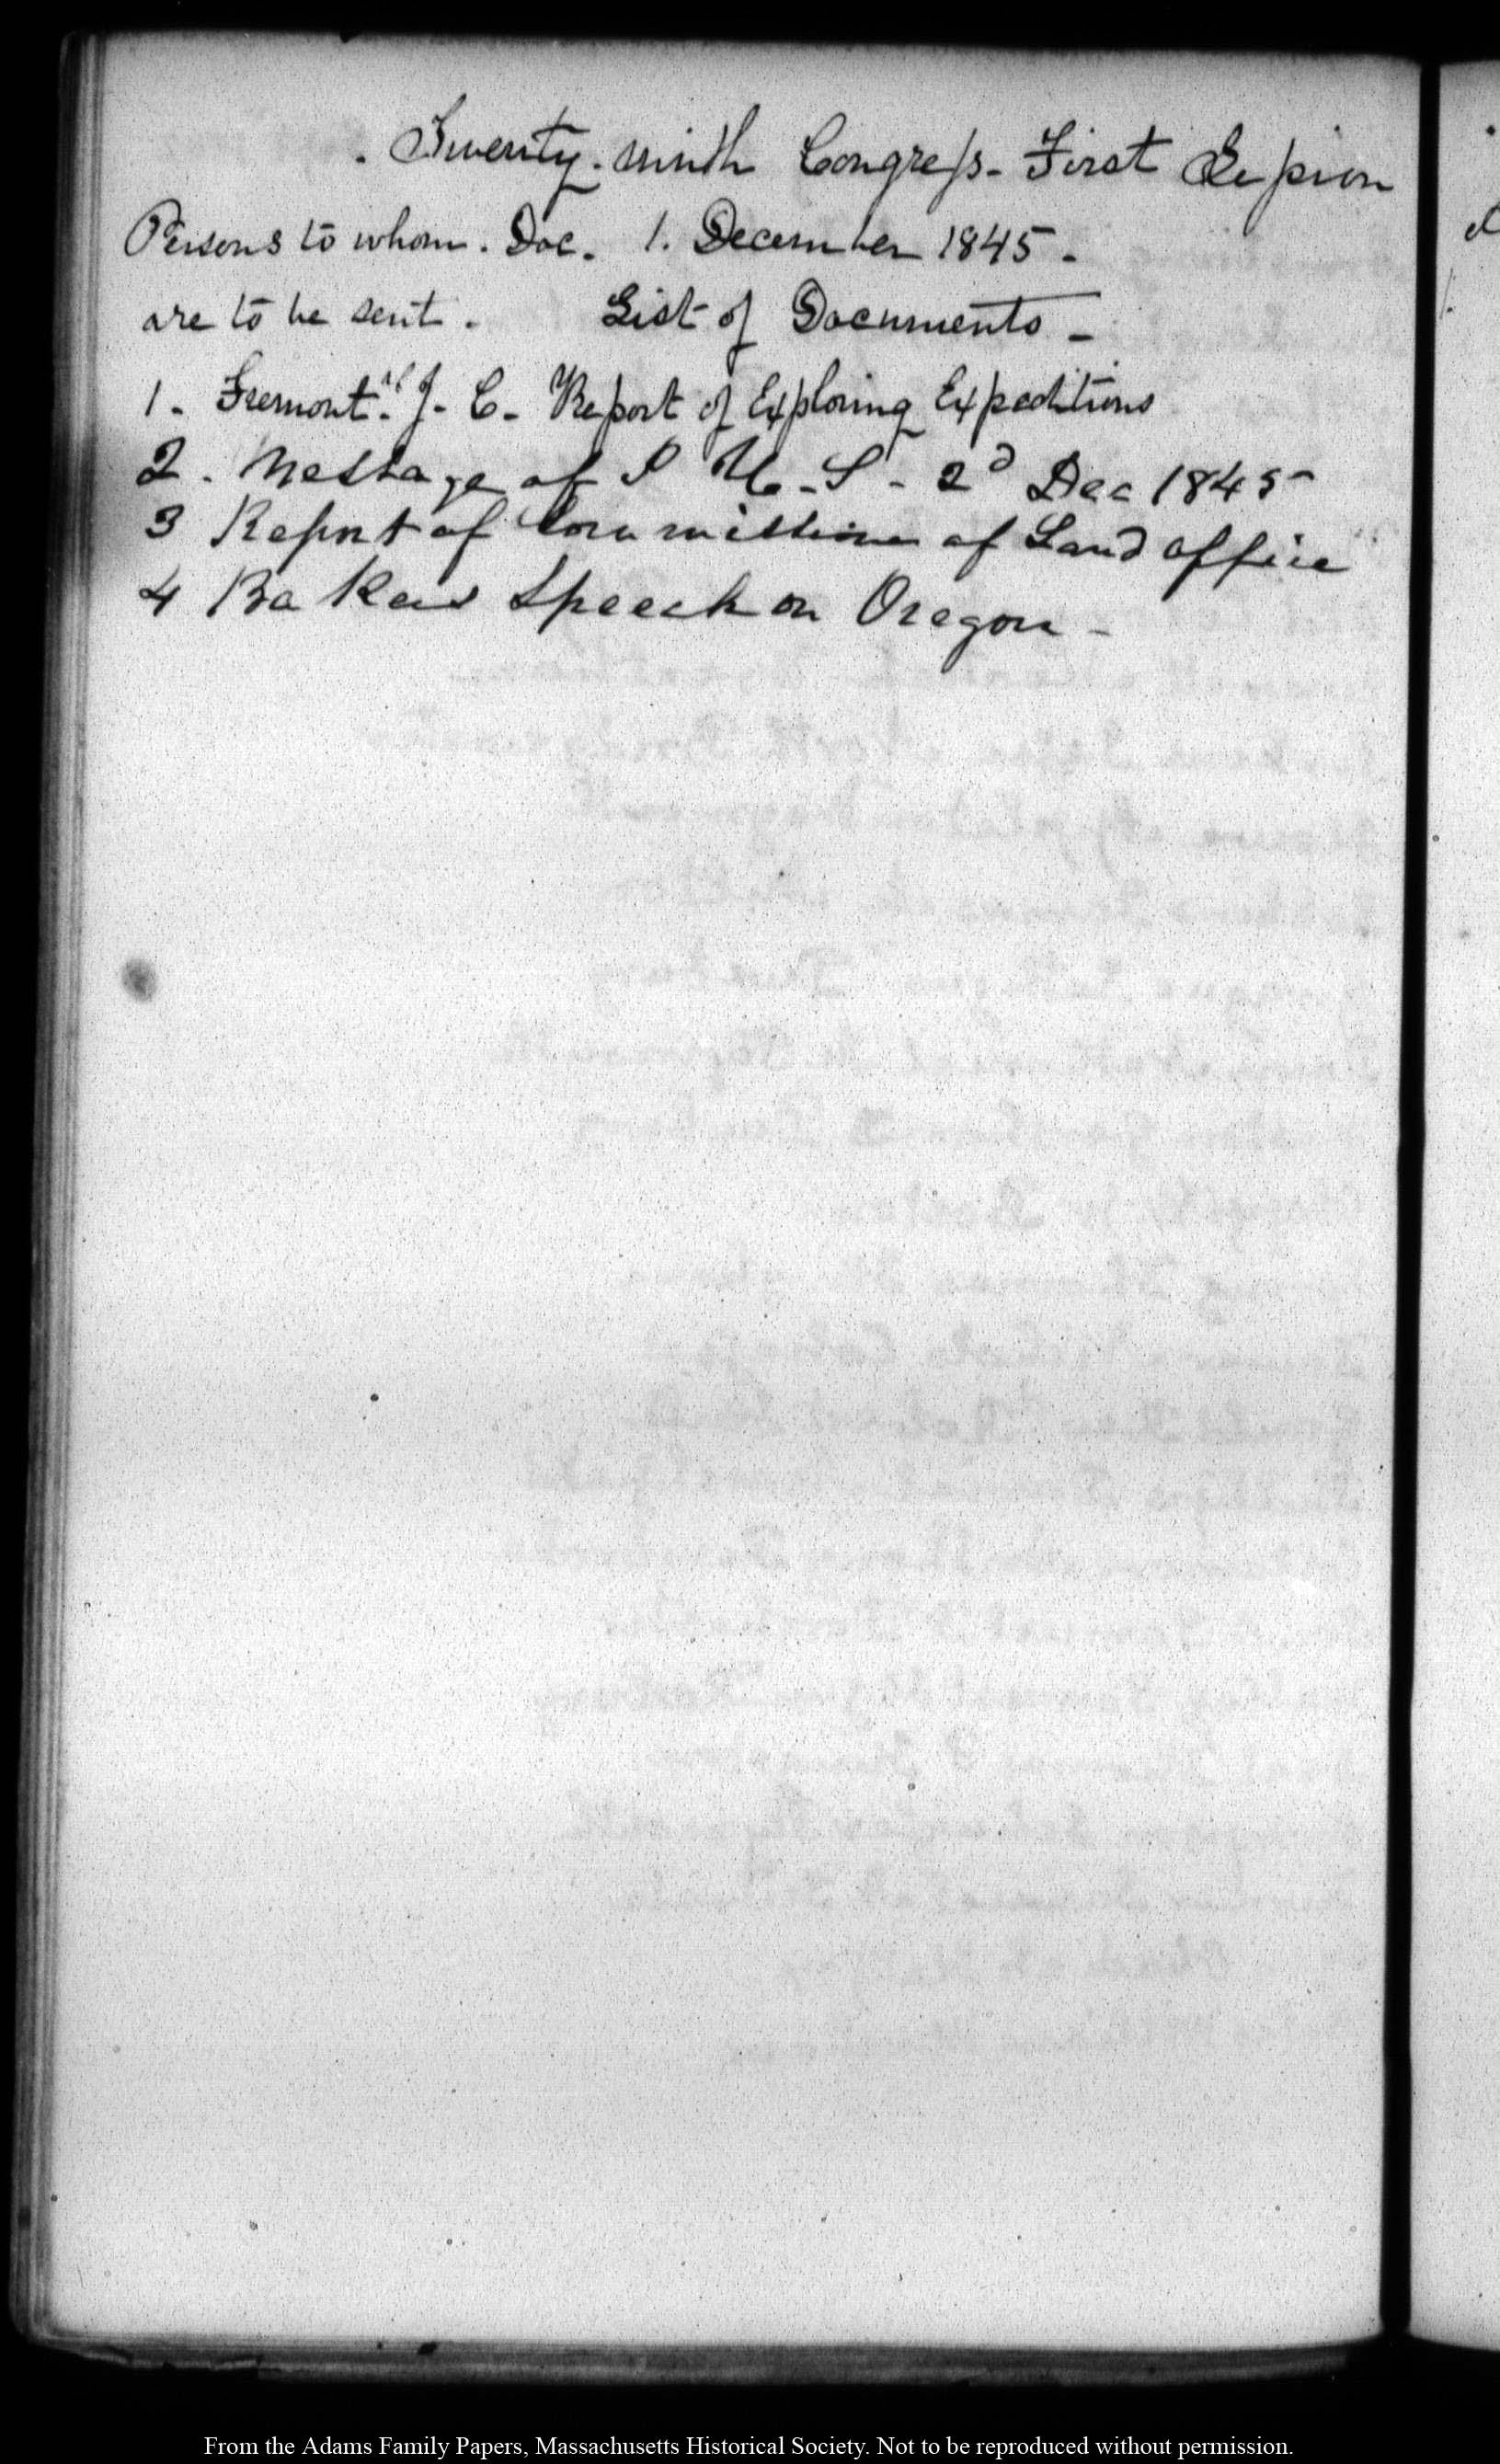 Twenty-ninth Congress- First Session
Persons to whom. Doc. 1. December 1845 -
are to be sent. List of Documents -
1. Fremont. J. C- Report of Exploring Expeditions
2. Message of P U.S- 2d Dec 1845
3 Report of Commissioner of Land office
4 Bakers Speech on Oregon -
From the Adams Family Papers, Massachusetts Historical Society. Not to be reproduced without permission.